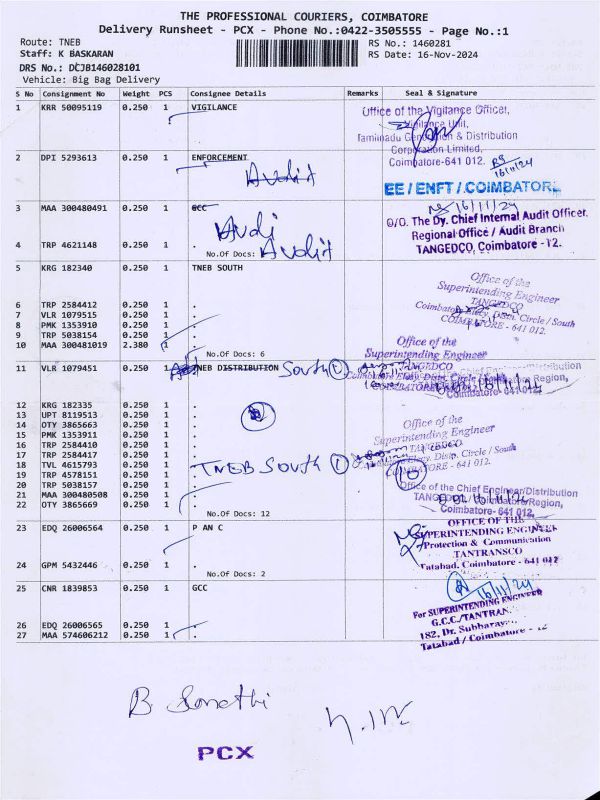 THE PROFESSIONAL COURIERS, COIMBATORE
Delivery Runsheet - PCX - Phone No.:0422-3505555 - Page No.:1
Route: TNEB RS No.: 1460281
Staff: K BASKARAN RS Date: 16-Nov-2024
DRS No.: DCJB146028101
Vehicle: Big Bag Delivery
S No Consignment No Weight PCS Consignee Details Remarks Seal & Signature
1 KRR 50095119 0.250 1 VIGILANCE
Office of the Vigilance Officer,
Vigilance Unit,
Tamilnadu Generation & Distribution
Corporation Limited,
Coimbatore-641 012.
2 DPI 5293613 0.250 1 ENFORCEMENT
16/11/24
Audit
EE / ENFT / COIMBATORE
3 MAA 300480491 0.250 1 GCC
16/11/24
Audi
O/O. The Dy. Chief Internal Audit Officer,
Regional Office / Audit Branch
TANGEDCO, Coimbatore - 12.
4 TRP 4621148 0.250 1 .
No.Of Docs: Audit
5 KRG 182340 0.250 1 TNEB SOUTH
Office of the
Superintending Engineer
TANGEDCO
Coimbatore Elecy. Distn. Circle / South
COIMBATORE - 641 012.
6 TRP 2584412 0.250 1 .
7 VLR 1079515 0.250 1 .
8 PMK 1353910 0.250 1 .
9 TRP 5038154 0.250 1 .
10 MAA 300481019 2.380 1 .
No.Of Docs: 6
Office of the
Superintending Engineer
TANGEDCO
Coimbatore Elecy. Distn. Circle / South
11 VLR 1079451 0.250 1 TNEB DISTRIBUTION South 1
Region,
Coimbatore- 641 012.
12 KRG 182335 0.250 1 .
13 UPT 8119513 0.250 1 .
14 OTY 3865663 0.250 1 .
15 PMK 1353911 0.250 1 .
16 TRP 2584410 0.250 1 .
17 TRP 2584417 0.250 1 .
18 TVL 4615793 0.250 1 . TNEB South 1
19 TRP 4578151 0.250 1 .
20 TRP 5038157 0.250 1 .
21 MAA 300480508 0.250 1 .
22 OTY 3865669 0.250 1 .
No.Of Docs: 12
Office of the
Superintending Engineer
TANGEDCO
Coimbatore Elecy. Distn. Circle / South
COIMBATORE - 641 012.
Office of the Chief Engineer/Distribution
TANGEDCO / Coimbatore/Region,
Coimbatore- 641 012.
23 EDQ 26006564 0.250 1 P AN C
OFFICE OF THE
SUPERINTENDING ENGINEER
Protection & Communication
TANTRANSCO
Tatabad, Coimbatore - 641 012
24 GPM 5432446 0.250 1 .
No.Of Docs: 2
25 CNR 1839853 0.250 1 GCC
16/11/24
For SUPERINTENDING ENGINEER
G.C.C./TANTRAN.
182, Dr. Subbaray
Tatabad / Coimbatore - 12
26 EDQ 26006565 0.250 1 .
27 MAA 574606212 0.250 1 .
PCX